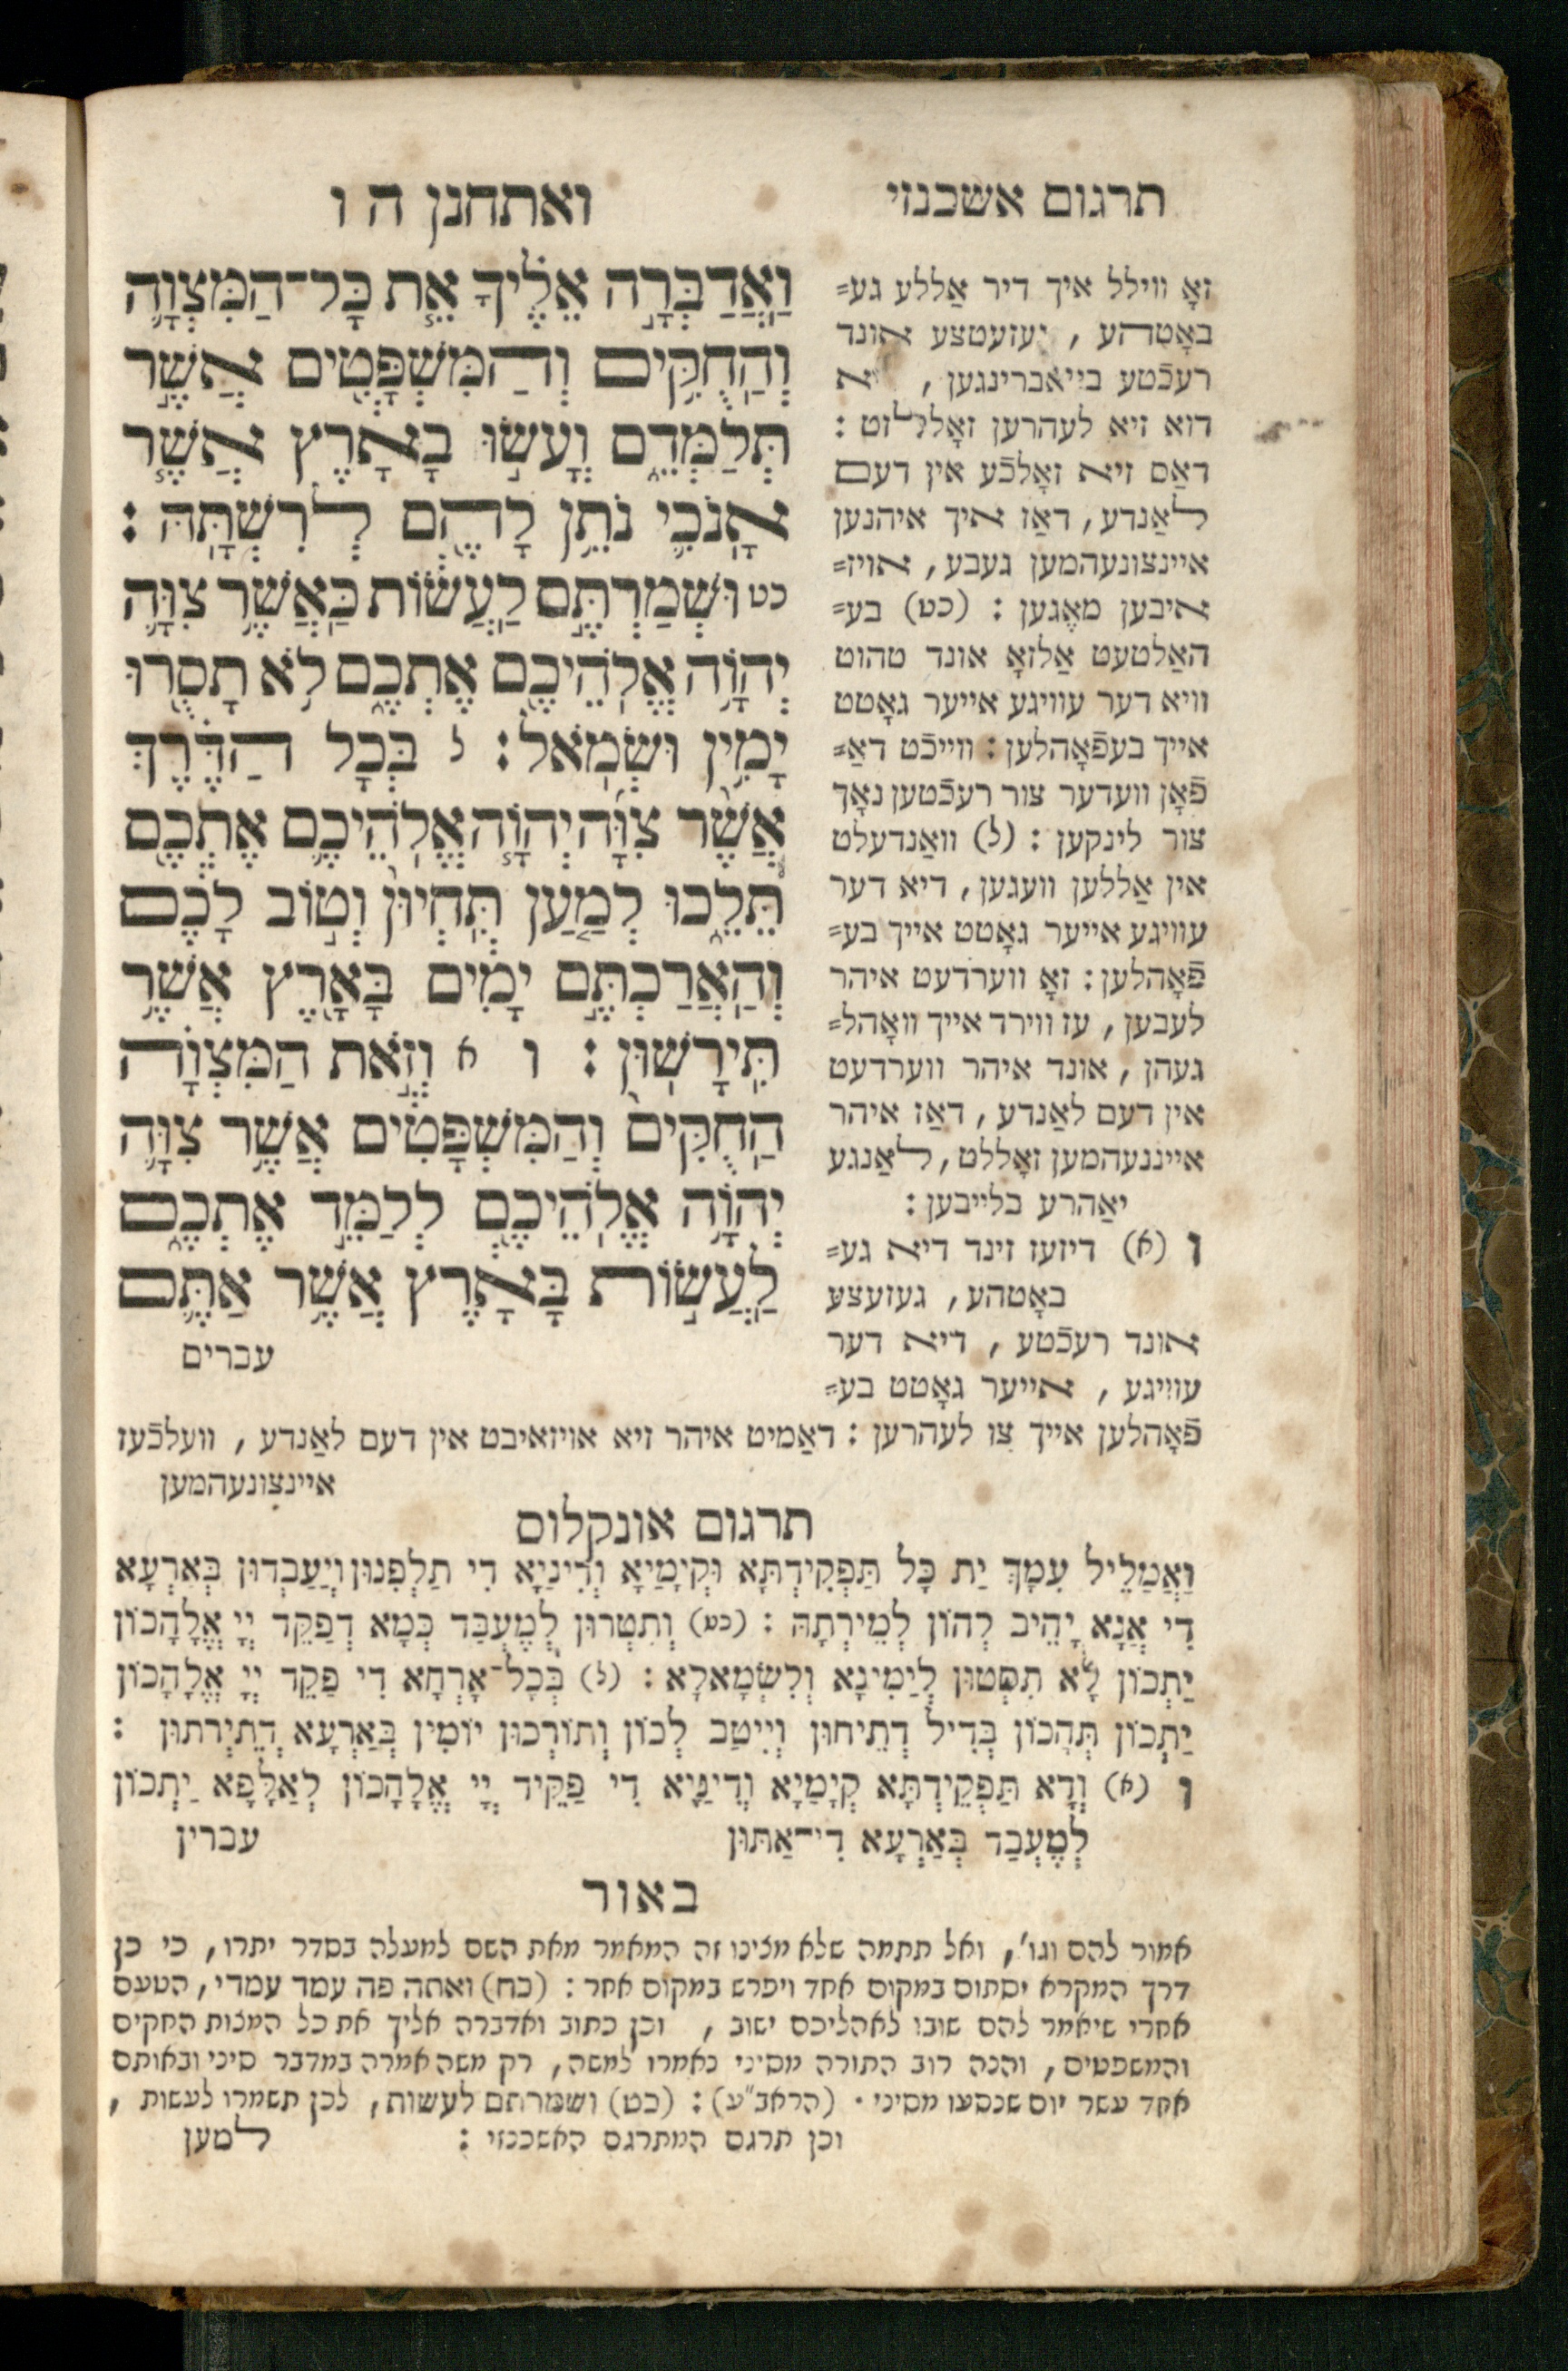 תרגום אשכנזי
ואתחנן ה ו
זאָ ווילל איך דיר אַללע גע=
באָטהע, יעזעטצע אונד
רעכֿטע בייאברינגען,
דוא זיא לעהרען זאָללזט :
דאַס זיא זאָלכֿע אין דעם
לאַנדע, דאַז איך איהנען
איינצונעהמען געבע, אויז=
איבען מאָגען : (כט) בע=
האַלטעט אַלזאָ אונד טהוט
וויא דער עוויגע אייער גאָטט
אייך בעפֿאָהלען : ווייכֿט דאַ=
פֿאָן וועדער צור רעכֿטען נאָך
צור לינקען : (ל) וואַנדעלט
אין אַללען וועגען, דיא דער
עוויגע אייער גאָטט אייך בע=
פֿאָהלען : זאָ ווערדעט איהר
לעבען, עז ווירד אייך וואָהל=
געהן, אונד איהר ווערדעט
אין דעם לאַנדע, דאַז איהר
איינעהמען זאָללט, לאַנגע
יאַהרע בלייבען :
ו (א) דיזעז זינד דיא גע=
באָטהע, געזעצע
אונד רעכֿטע, דיא דער
עוויגע, אייער גאָטט בע=
פֿאָהלען אייך צו לעהרען : דאַמיט איהר זיא אויזאיבט אין דעם לאַנדע, וועלכֿעז
איינצונעהמען
וַאֲדַבְּרָ֣ה אֵלֶ֗יךָ אֵ֧ת כׇּל־הַמִּצְוָ֛ה
וְהַחֻקִּ֥ים וְהַמִּשְׁפָּטִ֖ים אֲשֶׁ֣ר
תְּלַמְּדֵ֑ם וְעָשׂ֣וּ בָאָ֔רֶץ אֲשֶׁ֧ר
אָנֹכִ֛י נֹתֵ֥ן לָהֶ֖ם לְרִשְׁתָּֽהּ :
כט וּשְׁמַרְתֶּ֣ם לַעֲשׂ֔וֹת כַּאֲשֶׁ֥ר צִוָּ֛ה
יְהוָ֥ה אֱלֹהֵיכֶ֖ם אֶתְכֶ֑ם לֹ֥א תָסֻ֖רוּ
יָמִ֥ין וּשְׂמֹֽאל : ל בְּכׇל הַדֶּ֗רֶךְ
אֲשֶׁ֨ר צִוָּ֜ה יְהוָ֧ה אֱלֹהֵיכֶ֛ם אֶתְכֶ֖ם
תֵּלֵ֑כוּ לְמַ֤עַן תִּֽחְיוּן֙ וְט֣וֹב לָכֶ֔ם
וְהַאֲרַכְתֶּ֣ם יָמִ֔ים בָּאָ֖רֶץ אֲשֶׁ֥ר
תִּֽירָשֽׁוּן : ו א וְזֹ֣את הַמִּצְוָ֗ה
הַֽחֻקִּים֙ וְהַמִּשְׁפָּטִ֔ים אֲשֶׁ֥ר צִוָּ֛ה
יְהוָ֥ה אֱלֹהֵיכֶ֖ם לְלַמֵּ֣ד אֶתְכֶ֑ם
לַעֲשׂ֣וֹת בָּאָ֔רֶץ אֲשֶׁ֥ר אַתֶּ֛ם
עברים
תרגום אונקלוס
וַאֲמַלֵיל עִמָךְ יַת כָּל תַּפְקִידְתָּא וּקְיָמַיָא וְדִינַיָא דִי תַלְפִנוּן וְיַעַבְדוּן בְּאַרְעָא
דִי אֲנָא יָהֵיב לְהוֹן לְמֵירְתָהּ : (כט) וְתִטְרוּן לְמֶעְבַּד כְּמָא דְפַקֵד יְיָ אֱלָהָכוֹן
יַתְכוֹן לָא תִסְטוּן לְיַמִינָא וְלִשְׂמָאלָא : (ל) בְּכָל־אָרְחָא דִי פַקֵד יְיָ אֱלָהָכוֹן
יַתְכוֹן תְּהָכוֹן בְּדִיל דְתֵיחוּן וְיִיטַב לְכוֹן וְתוֹרְכוּן יוֹמִין בְּאַרְעָא דְתֵירְתוּן :
ו (א) וְדָא תַּפְקֵידְתָּא קְיָמַיָא וְדִינַיָא דִי פַקֵיד יְיָ אֱלָהָכוֹן לְאַלָפָא יַתְכוֹן
לְמֶעְבַד בְּאַרְעָא דִי־אַתּוּן
עברין
באור
אמור להם וגו', ואל תתמה שלא מצינו זה המאמר מאת השם למעלה בסדר יתרו, כי כן
דרך המקרא יסתום במקום אחד ויפרש במקום אחר : (כח) ואתה פה עמד עמדי, הטעם
אחרי שיאמר להם שובו לאהליכם ישוב, וכן כתוב ואדברה אליך את כל המצות החקים
והמשפטים, והנה רוב התורה מסיני נאמרו למשה, רק משה אמרה במדבר סיני ובאותם
אחד עשר יום שנסעו מסיני · (הראב"ע) : (כט) ושמרתם לעשות, לכן תשמרו לעשות,
וכן תרגם המתרגם האשכנזי :
למען